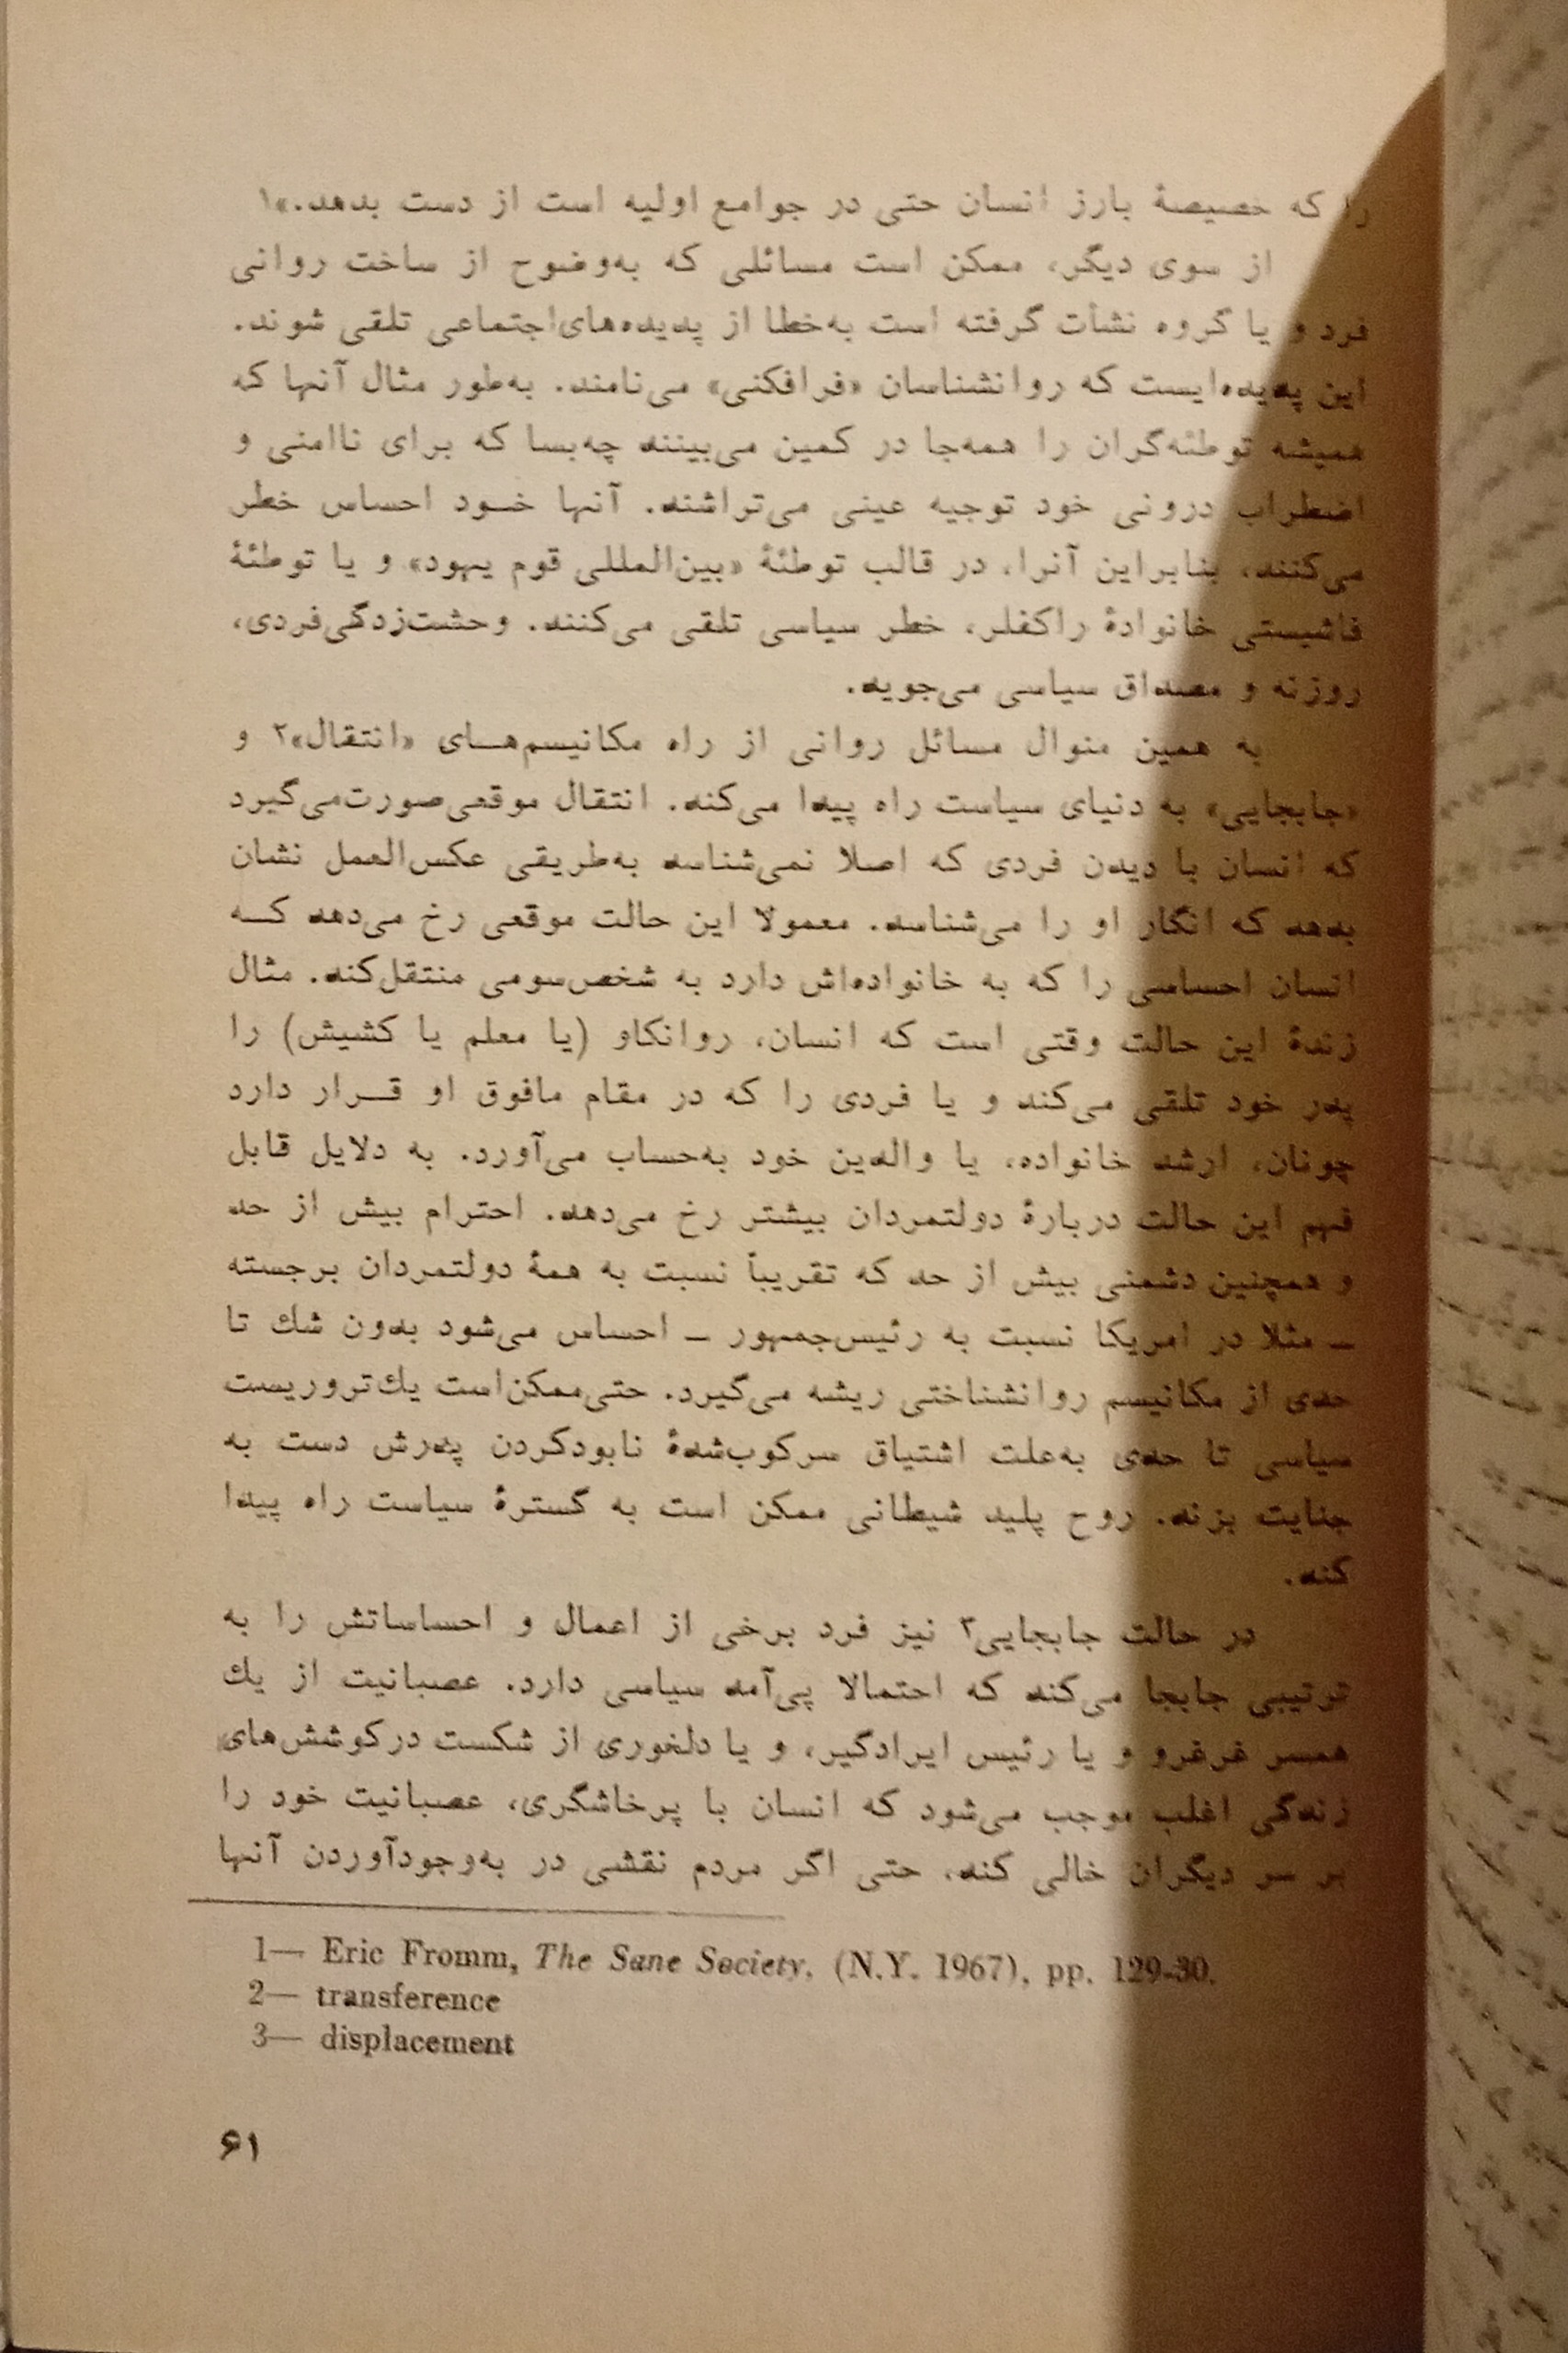 را که خصیصهٔ بارز انسان حتی در جوامع اولیه است از دست بدهد.»۱
از سوی دیگر، ممکن است مسائلی که به‌وضوح از ساخت روانی
فرد و یا گروه نشأت گرفته است به‌خطا از پدیده‌های‌اجتماعی تلقی شوند.
این پدیده‌ایست که روانشناسان «فرافکنی» می‌نامند. به‌طور مثال آنها که
همیشه توطئه‌گران را همه‌جا در کمین می‌بینند چه‌بسا که برای ناامنی و
اضطراب درونی خود توجیه عینی می‌تراشند. آنها خود احساس خطر
می‌کنند، بنابراین آنرا، در قالب توطئهٔ «بین‌المللی قوم یهود» و یا توطئهٔ
فاشیستی خانوادهٔ راکفلر، خطر سیاسی تلقی می‌کنند. وحشت‌زدگی‌فردی،
روزنه و مصداق سیاسی می‌جوید.
به همین منوال مسائل روانی از راه مکانیسم‌های «انتقال»۲ و
«جابجایی» به دنیای سیاست راه پیدا می‌کند. انتقال موقعی‌صورت‌می‌گیرد
که انسان با دیدن فردی که اصلا نمی‌شناسد به‌طریقی عکس‌العمل نشان
بدهد که انگار او را می‌شناسد. معمولا این حالت موقعی رخ می‌دهد که
انسان احساسی را که به خانواده‌اش دارد به شخص‌سومی منتقل‌کند. مثال
زندهٔ این حالت وقتی است که انسان، روانکاو (یا معلم یا کشیش) را
پدر خود تلقی می‌کند و یا فردی را که در مقام مافوق او قرار دارد
چونان، ارشد خانواده، یا والدین خود به‌حساب می‌آورد. به دلایل قابل
فهم این حالت دربارهٔ دولتمردان بیشتر رخ می‌دهد. احترام بیش از حد
و همچنین دشمنی بیش از حد که تقریباً نسبت به همهٔ دولتمردان برجسته
ـ مثلا در امریکا نسبت به رئیس‌جمهور ـ احساس می‌شود بدون شك تا
حدی از مکانیسم روانشناختی ریشه می‌گیرد. حتی‌ممکن‌است یك‌تروریست
سیاسی تا حدی به‌علت اشتیاق سرکوب‌شدهٔ نابودکردن پدرش دست به
جنایت بزند. روح پلید شیطانی ممکن است به گسترهٔ سیاست راه پیدا
کند.
در حالت جابجایی۳ نیز فرد برخی از اعمال و احساساتش را به
ترتیبی جابجا می‌کند که احتمالا پی‌آمد سیاسی دارد. عصبانیت از یك
همسر غرغرو و یا رئیس ایرادگیر، و یا دلخوری از شکست درکوشش‌های
زندگی اغلب موجب می‌شود که انسان با پرخاشگری، عصبانیت خود را
بر سر دیگران خالی کند، حتی اگر مردم نقشی در به‌وجودآوردن آنها
1— Eric Fromm, The Sane Society, (N.Y. 1967), pp. 129-30.
2— transference
3— displacement
۶۱